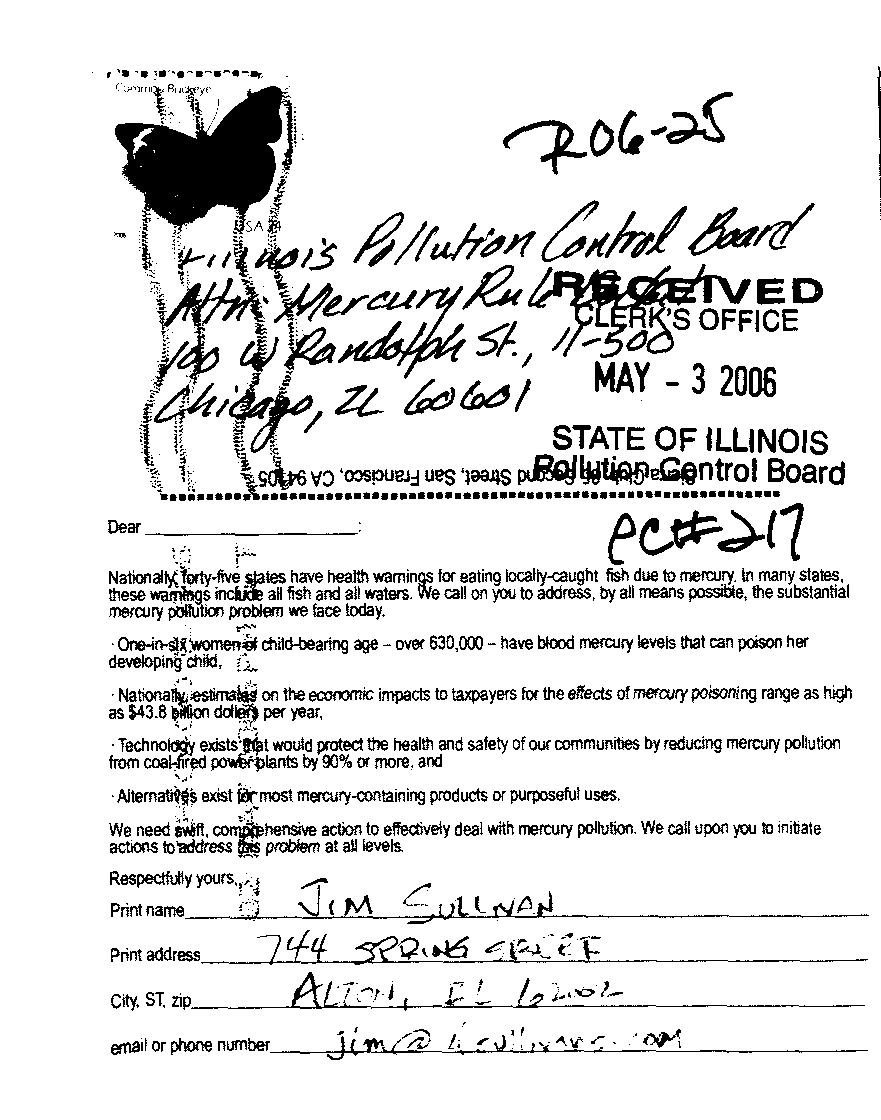 Common Buckeye
R06-25
USA 24
Illinois Pollution Control Board
Attn: Mercury Rule
100 W Randolph St., 11-500
Chicago, IL 60601
RECEIVED
CLERK'S OFFICE
MAY - 3 2006
STATE OF ILLINOIS
Pollution Control Board
Sierra Club, 85 Second Street, San Francisco, CA 94105
PC#217
Dear ____________________:
Nationally, forty-five states have health warnings for eating locally-caught fish due to mercury. In many states,
these warnings include all fish and all waters. We call on you to address, by all means possible, the substantial
mercury pollution problem we face today.
· One-in-six women of child-bearing age – over 630,000 – have blood mercury levels that can poison her
developing child,
· Nationally, estimates on the economic impacts to taxpayers for the effects of mercury poisoning range as high
as $43.8 billion dollars per year,
· Technology exists that would protect the health and safety of our communities by reducing mercury pollution
from coal-fired power plants by 90% or more, and
· Alternatives exist for most mercury-containing products or purposeful uses.
We need swift, comprehensive action to effectively deal with mercury pollution. We call upon you to initiate
actions to address this problem at all levels.
Respectfully yours,
Print name JIM SULLIVAN
Print address 744 SPRING STREET
City, ST, zip ALTON, IL 62002
email or phone number jim@